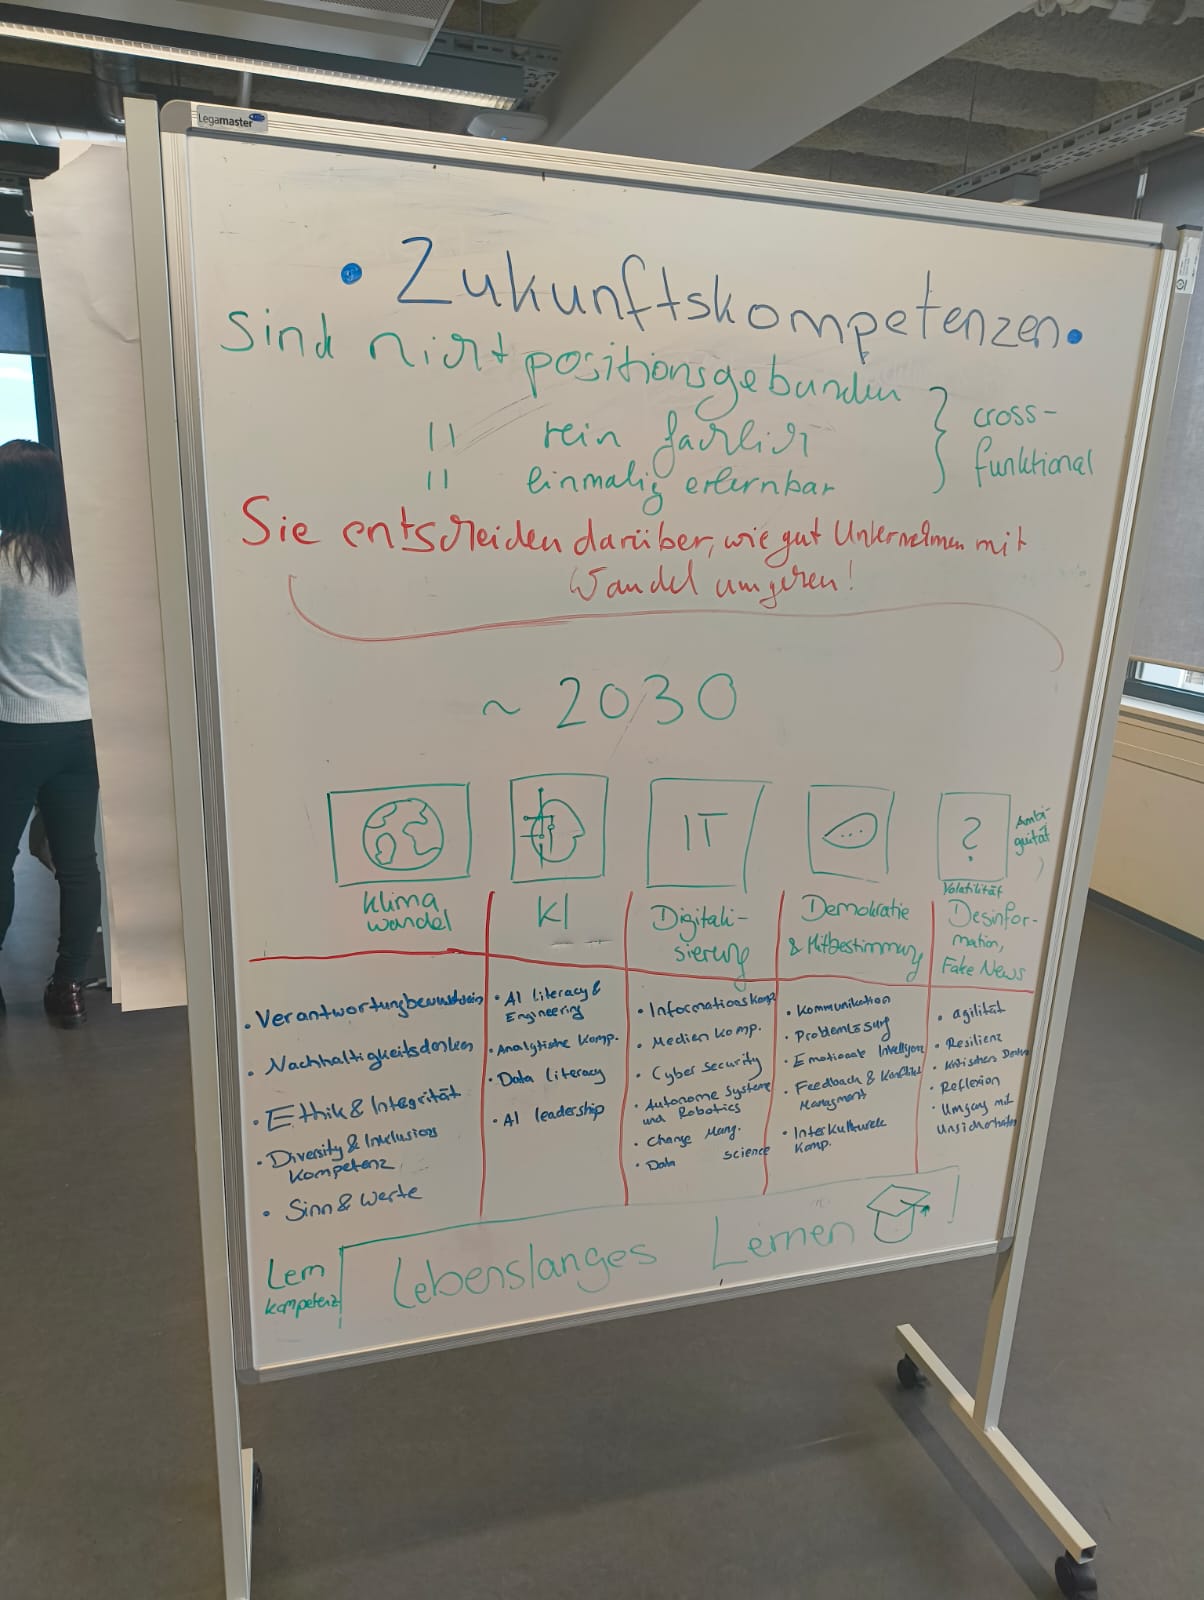 Legamaster
• Zukunftskompetenzen •
Sind nicht positionsgebunden
" rein fachlich
" einmalig erlernbar
} cross-
funktional
Sie entscheiden darüber, wie gut Unternehmen mit
Wandel umgehen!
~ 2030
IT
?
Ambi-
guität
Klima
wandel
KI
Digitali-
sierung
Demokratie
& Mitbestimmung
Volatilität
Desinfor-
mation,
Fake News
• Verantwortungbewusstsein
• Nachhaltigkeitsdenken
• Ethik & Integrität
• Diversity & Inklusions
Kompetenz
• Sinn & Werte
• AI literacy &
Engineering
• Analytische Komp.
• Data literacy
• AI leadership
• Informationskomp
• Medien komp.
• Cyber Security
• Autonome Systeme
und Robotics
• Change Mang.
• Data science
• Kommunikation
• Problemlösung
• Emotionale Intelligenz
• Feedback & Konflikt
Managment
• Interkulturelle
Komp.
• agilität
• Resilienz
• kritisches Denken
• Reflexion
• Umgang mit
Unsicherheiten
Lern
kompetenz
Lebenslanges Lernen